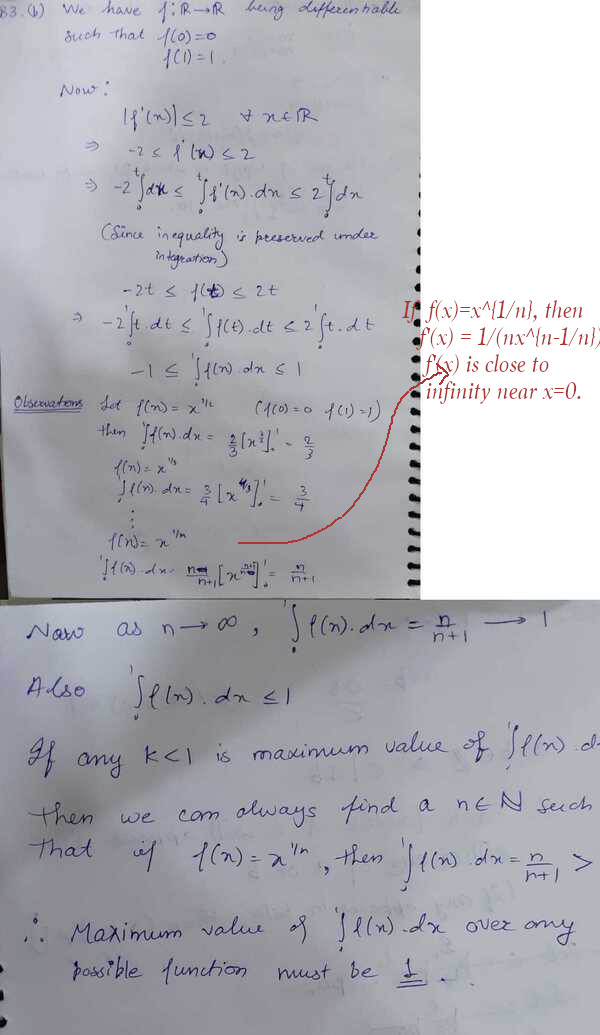 B3.(b) We have f: R→R being differentiable
such that f(0)=0
f(1)=1.
Now:
|f'(x)| ≤ 2 ∀ x∈R
⇒ -2 ≤ f'(x) ≤ 2
⇒ -2 ∫₀ᵗ dx ≤ ∫₀ᵗ f'(x).dx ≤ 2 ∫₀ᵗ dx
(Since inequality is preserved under
integration)
-2t ≤ f(t) ≤ 2t
⇒ -2 ∫₀¹ t.dt ≤ ∫₀¹ f(t).dt ≤ 2 ∫₀¹ t.dt
-1 ≤ ∫₀¹ f(x).dx ≤ 1
Observations Let f(x) = x^{1/2} (f(0)=0 f(1)=1)
then ∫₀¹ f(x).dx = 2/3 [x^{3/2}]₀¹ = 2/3
f(x) = x^{1/3}
∫₀¹ f(x).dx = 3/4 [x^{4/3}]₀¹ = 3/4
⋮
f(x) = x^{1/n}
∫₀¹ f(x).dx = n/n+1 [x^{n+1/n}]₀¹ = n/n+1
If f(x)=x^{1/n}, then
f'(x) = 1/(nx^{n-1/n})
f'(x) is close to
infinity near x=0.
Now as n→∞, ∫₀¹ f(x).dx = n/n+1 → 1
Also ∫₀¹ f(x).dx ≤ 1
If any k<1 is maximum value of ∫₀¹ f(x).d
then we can always find a n∈N such
that if f(x) = x^{1/n}, then ∫₀¹ f(x).dx = n/n+1 >
∴ Maximum value of ∫₀¹ f(x).dx over any
possible function must be 1.